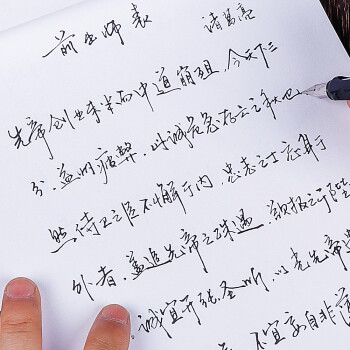 前出师表 诸葛亮
先帝创业未半而中道崩殂,今天下三
分,益州疲弊,此诚危急存亡之秋也
然侍卫之臣不懈于内,忠志之士忘身于
外者,盖追先帝之殊遇,欲报之于陛
诚宜开张圣听,以光先帝
不宜妄自菲薄